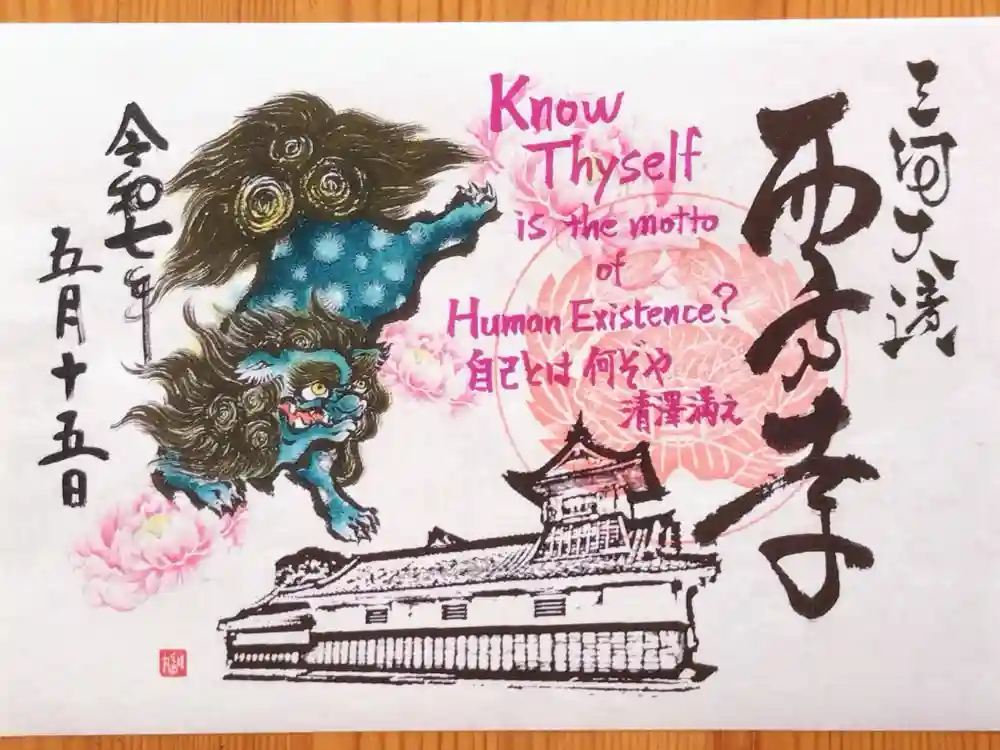 三河大濱
西方寺
Know
Thyself
is the motto
of
Human Existence?
自己とは何ぞや
清澤満之
令和七年
五月十五日